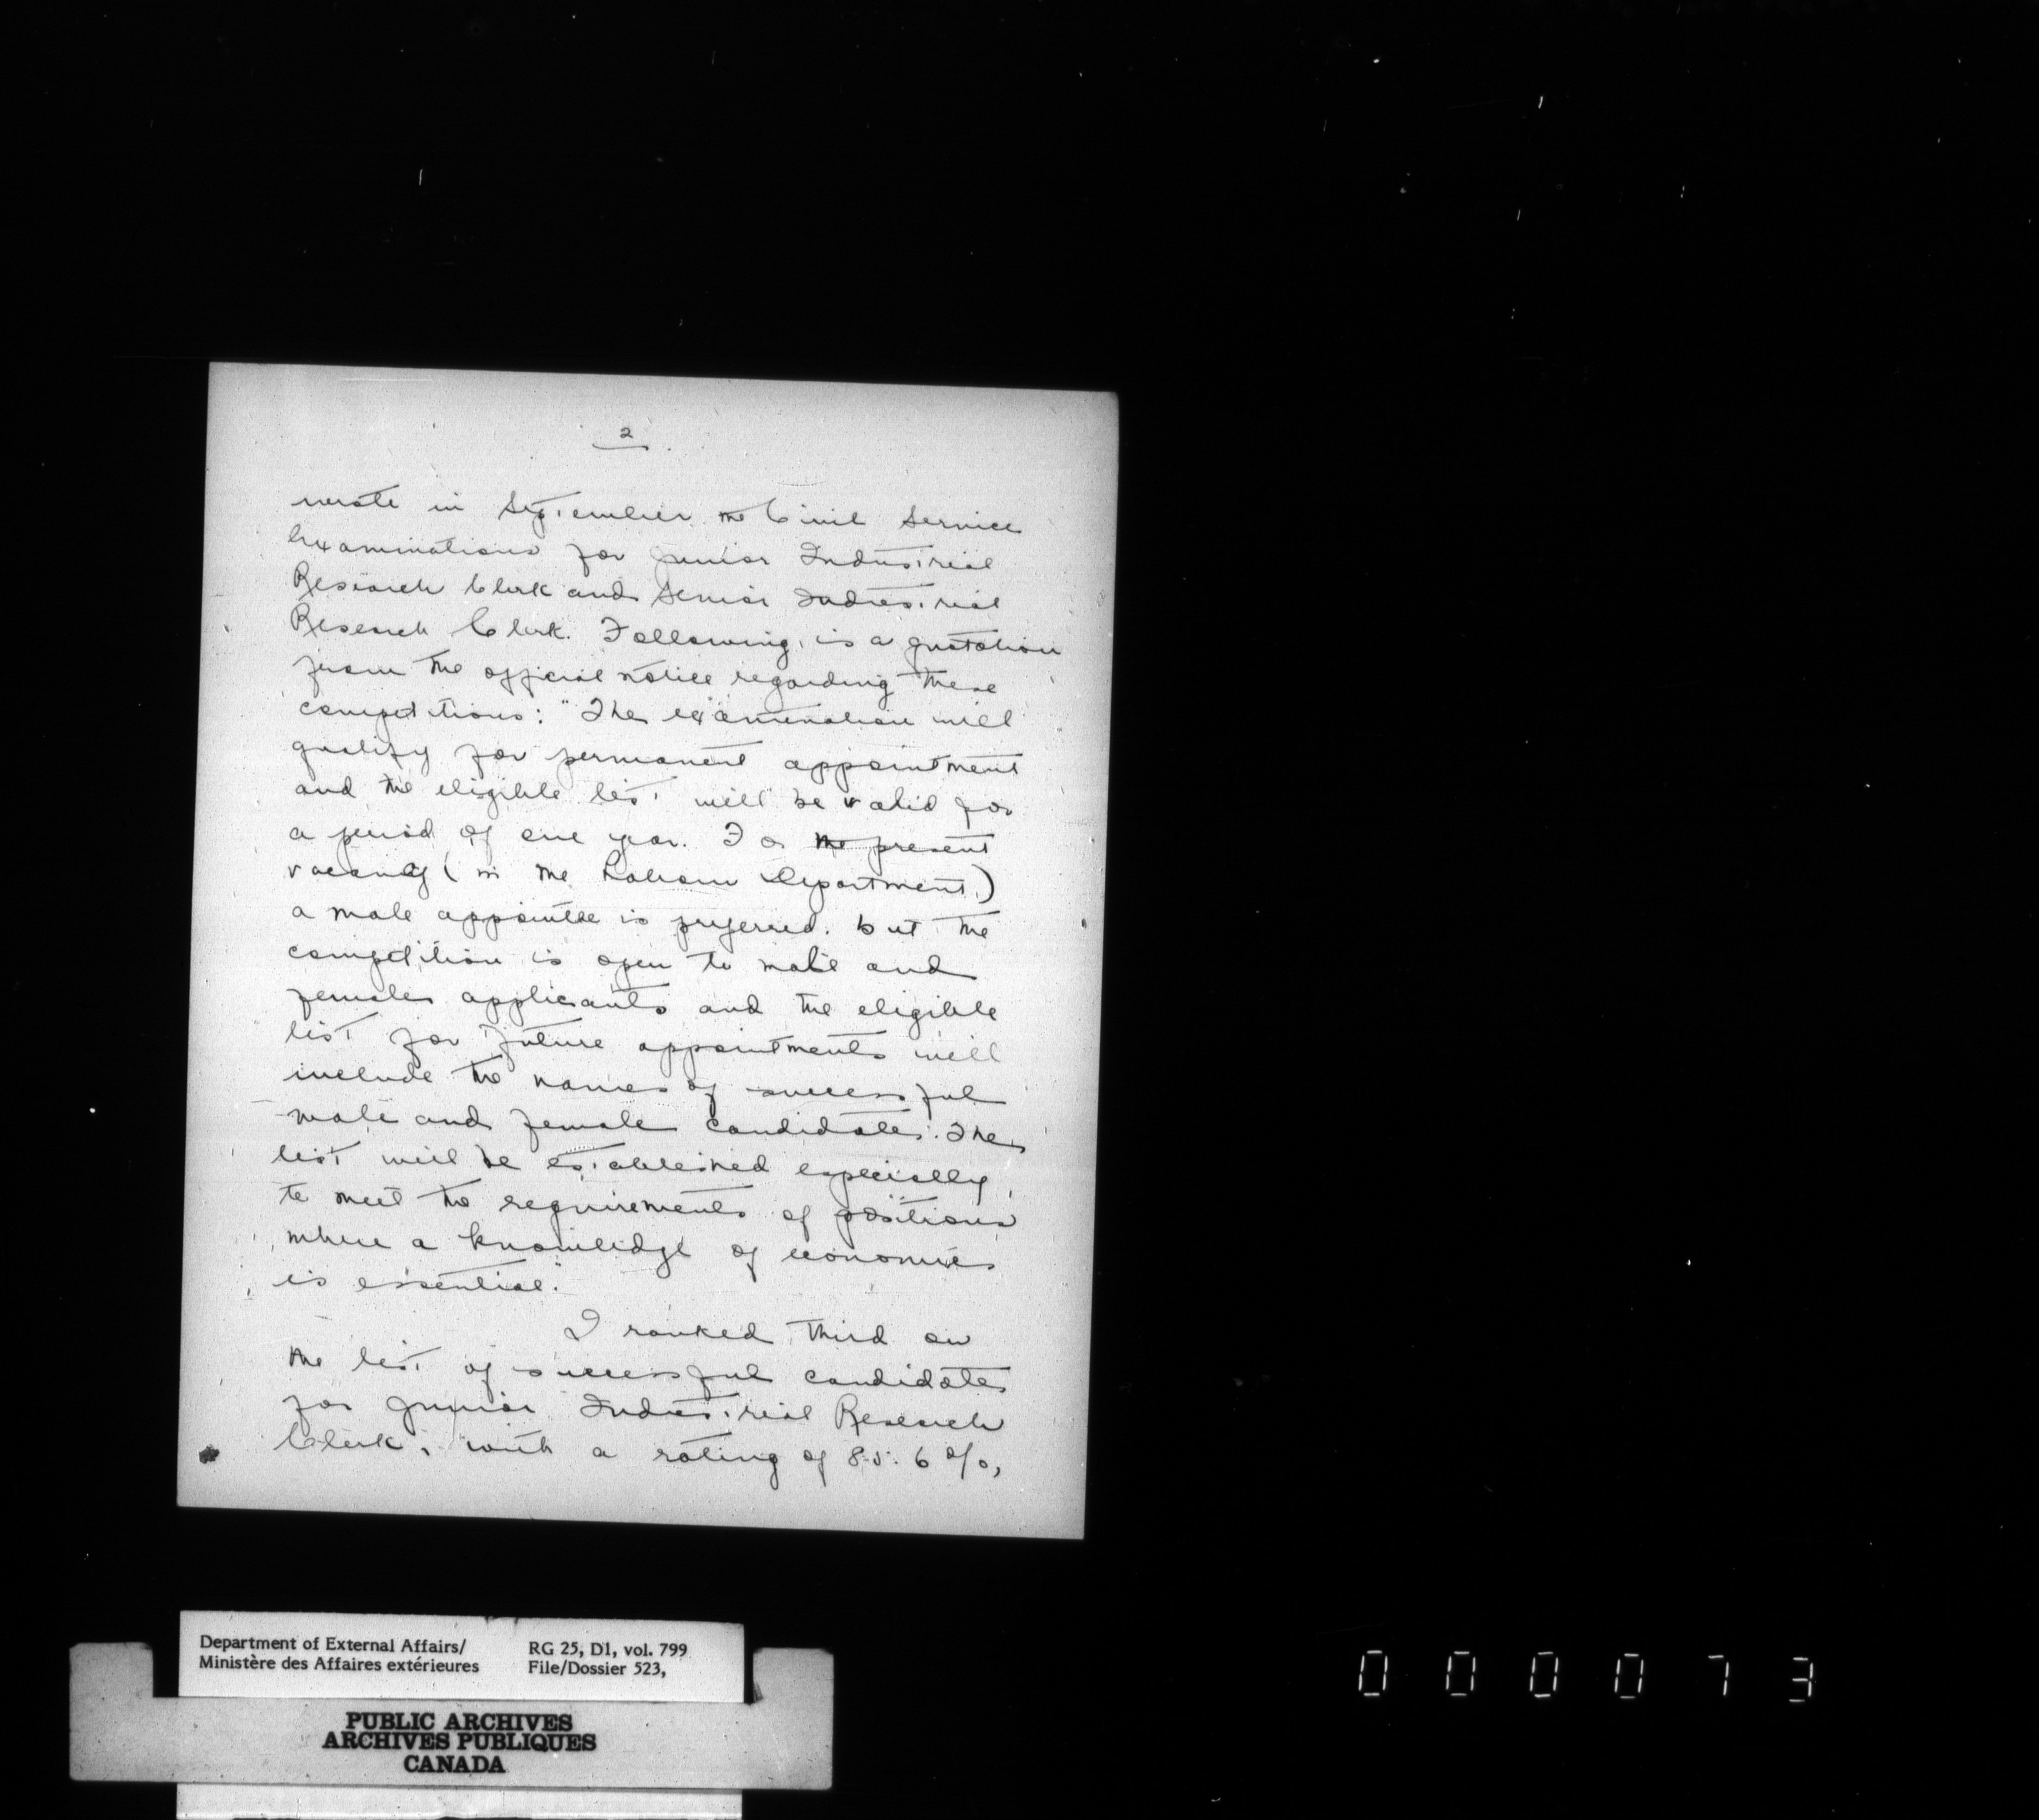 2
wrote in September the Civil Service
Examinations for Junior Industrial
Research Clerk and Senior Industrial
Research Clerk. Following is a quotation
from the official notice regarding these
competitions: "The examination will
qualify for permanent appointment
and the eligible list will be valid for
a period of one year. For the present
vacancy (in the Labour Department)
a male appointee is preferred. but the
competition is open to male and
female applicants and the eligible
list for future appointments will
include the names of successful
male and female candidates. The
list will be established especially
to meet the requirements of positions
where a knowledge of economics
is essential."
I ranked third on
the list of successful candidates
for Junior Industrial Research
Clerk, with a rating of 85.6 %,
Department of External Affairs/ RG 25, D1, vol. 799
Ministère des Affaires extérieures File/Dossier 523,
PUBLIC ARCHIVES
ARCHIVES PUBLIQUES
CANADA
000073